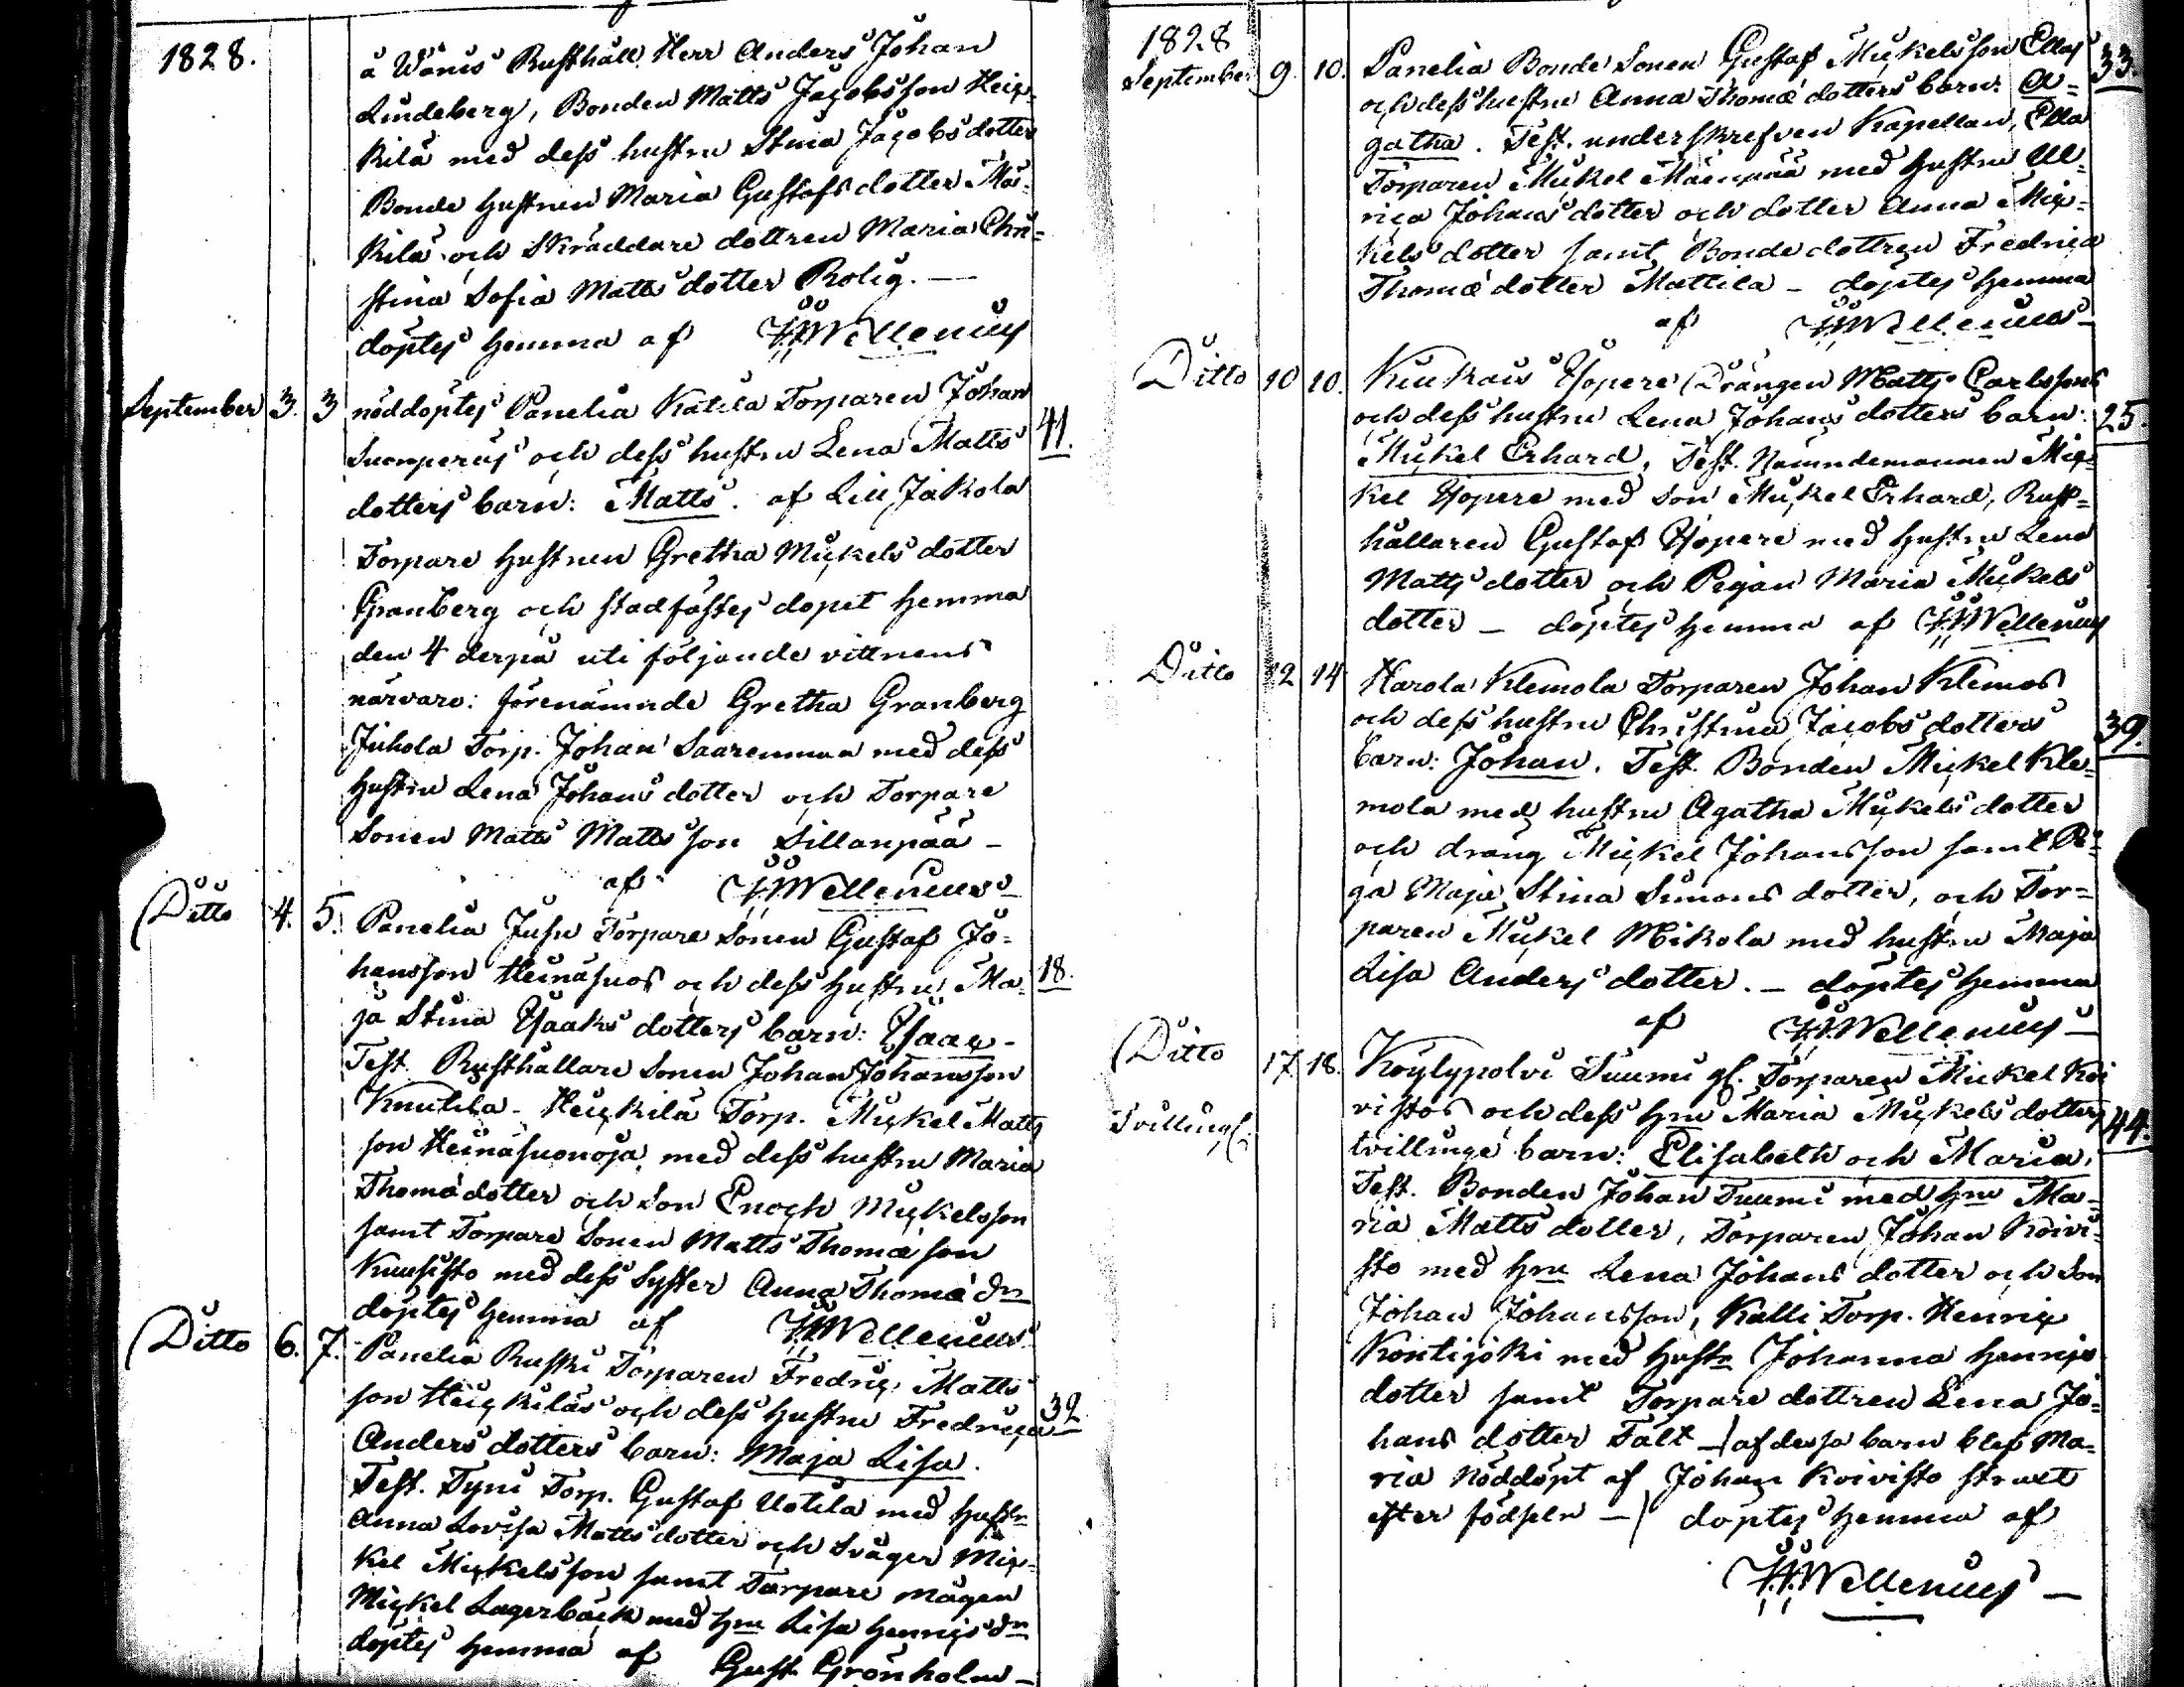 1828.
å Wanis Rusthåll Herr Anders Johan
Lindeberg, Bonden Matts Jacobsson Heic-
kilä med dess hustru Stina Jacobsdotter
Bonde hustrun Maria Gustafsdotter Mar-
kila och Skräddare dottren Maria Chri-
stina Sofia Mattsdotter Rolig. —
döptes hemma af Wellenius
September 3. 3 nöddöptes Panelia Katila Torparen Johan
Suomperäs och dess hustru Lena Matts 41.
dotters barn: Matts. af Lill Jakola
Torpare hustrun Gretha Mickelsdotter
Granberg och stadfästes dopet hemma
den 4 derpå uti följande vittnens
närvaro: förenämnde Gretha Granberg
Juhola Torp. Johan Saarenmaa med dess
hustru Lena Johansdotter och Torpare
Sonen Matts Mattsson Sillanpää —
af Wellenius —
Ditto 4. 5. Panelia Jusu Torpare Sonen Gustaf Jo-
hansson Heinäsuos och dess hustru Ma- 18.
ja Stina Isaaks dotters barn: Isaac —
Test. Rusthållare Sonen Johan Johansson
Knutila - Heickilä Torp. Mickel Matts
son Heinäsuonoja med dess hustru Maria
Thomæ dotter och Son Enoch Mickelsson
samt Torpare Sonen Matts Thomæ son
Kuusisto med dess Syster Anna Thomæ dr
döptes hemma af Wellenius
Ditto 6. 7. Panelia Ruski Torparen Fredric Matts
son Heickiläs och dess hustru Fredrica 32
Anders dotters barn: Maja Lisa.
Test. Tyni Torp. Gustaf Uotila med hustr
Anna Lovisa Mattsdotter och Svåger Mic-
kel Mickelsson samt Torpare mågen
Mickel Lagerbäck med hru Lisa Henrics dr
döptes hemma af Gust. Grönholm —
1828
September 9. 10. Panelia Bonde Sonen Gustaf Mickelsson Ellas 33.
och dess hustru Anna Thomæ dotters barn: A-
gatha. Test. underskrefven Kapellan, Ella
Torparen Mickel Mäenpää med hustru Ul-
rica Johansdotter och dotter Anna Mic-
kels dotter samt Bonde dottren Fredrica
Thomæ dotter Mattila — döptes hemma
af Wellenius —
Ditto 10 10. Kiukais Opere Drängen Matts Carlssons
och dess hustru Lena Johans dotters barn: 25.
Mickel Erhard. Test. Nämndemannen Mic-
kel Opere med Son Mickel Erhard, Rust-
hållaren Gustaf Opere med hustru Lena
Matts dotter och Pigan Maria Mickels
dotter — döptes hemma af Wellenius
Ditto 12 14 Harola Klemola Torparen Johan Klemos
och dess hustru Christina Jacobs dotters 39.
barn: Johan. Test. Bonden Mickel Kle-
mola med hustru Agatha Mickelsdotter
och dräng Mickel Johansson samt Pi-
ga Maja Stina Simons dotter, och Tor-
paren Mickel Mikola med hustru Maja
Lisa Anders dotter. — döptes hemma
af Wellenius —
Ditto 17. 18. Köylypolvi Tuumi gl. Torparen Mickel Koi
vistos och dess hru Maria Mickels dotters 44.
Tvilling
tvillinge barn: Elisabeth och Maria.
Test. Bonden Johan Tuumi med hru Ma-
ria Matts dotter, Torparen Johan Koivi-
sto med hru Lena Johans dotter och Son
Johan Johansson, Kalli Torp. Henric
Kontijoki med hustr Johanna Henrics
dotter samt Torpare dottren Lena Jo-
hans dotter Fält —/ af dessa barn blef Ma-
ria nöddöpt af Johan Koivisto straxt
efter födseln —/ döptes hemma af
Wellenius —